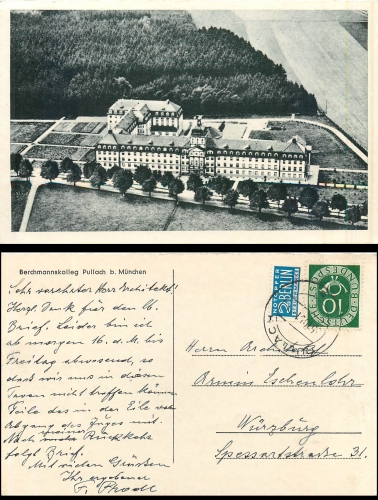 Berchmannskolleg Pullach b. München
Sehr verehrter Herr Architekt!
Herzl. Dank für den lb.
Brief. Leider bin ich
ab morgen 16. d. M. bis
Freitag abwesend, so
dass wir uns in diesen
Tagen nicht treffen können
Teile das in der Eile vor
Abgang des Zuges mit.
Nach meiner Rückkehr
folgt Brief.
Mit vielen Grüssen
Ihr ergebener
NOTOPFER
2 BERLIN
STEUERMARKE
DEUTSCHE BUNDESPOST
10
PULLACH
Herrn Architekt
Armin Eschenlohr
Würzburg
Spessartstraße 31.